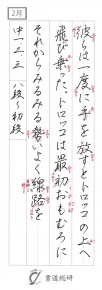 2月
彼らは一度に手を放すとトロッコの上へ
飛び乗った。トロッコは最初おもむろに
それからみるみる勢いよく線路を
中一二三 八段〜初段
書道総研